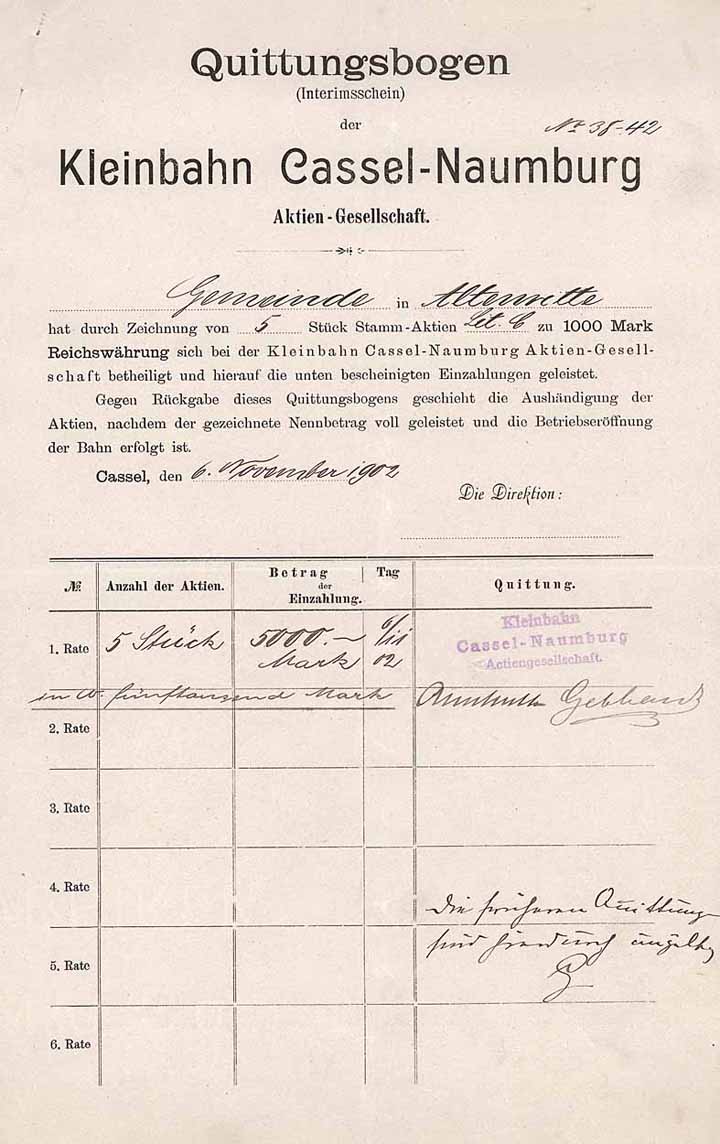 Quittungsbogen
(Interimsschein)
der
No 38-42
Kleinbahn Cassel-Naumburg
Aktien-Gesellschaft.
Gemeinde in Altenritte
hat durch Zeichnung von 5 Stück Stamm-Aktien Lit. C zu 1000 Mark
Reichswährung sich bei der Kleinbahn Cassel-Naumburg Aktien-Gesell-
schaft betheiligt und hierauf die unten bescheinigten Einzahlungen geleistet.
Gegen Rückgabe dieses Quittungsbogens geschieht die Aushändigung der
Aktien, nachdem der gezeichnete Nennbetrag voll geleistet und die Betriebseröffnung
der Bahn erfolgt ist.
Cassel, den 6. November 1902
Die Direktion:
№ Anzahl der Aktien. Betrag der Einzahlung. Tag Quittung.
1. Rate 5 Stück 5000.— Mark 6/11 02
Kleinbahn
Cassel-Naumburg
Actiengesellschaft.
in W. fünftausend Mark
Gebhard
2. Rate
3. Rate
4. Rate
Die früheren Quittungen
sind hierdurch ungültig
5. Rate
6. Rate